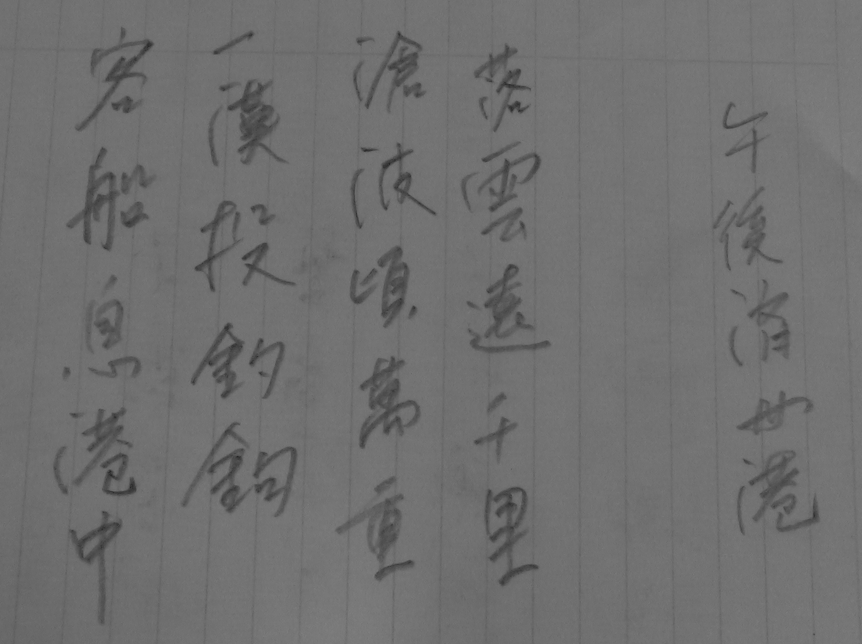 午後済州港
落雲遠千里
滄波頃萬重
一漢投釣鉤
客船息港中